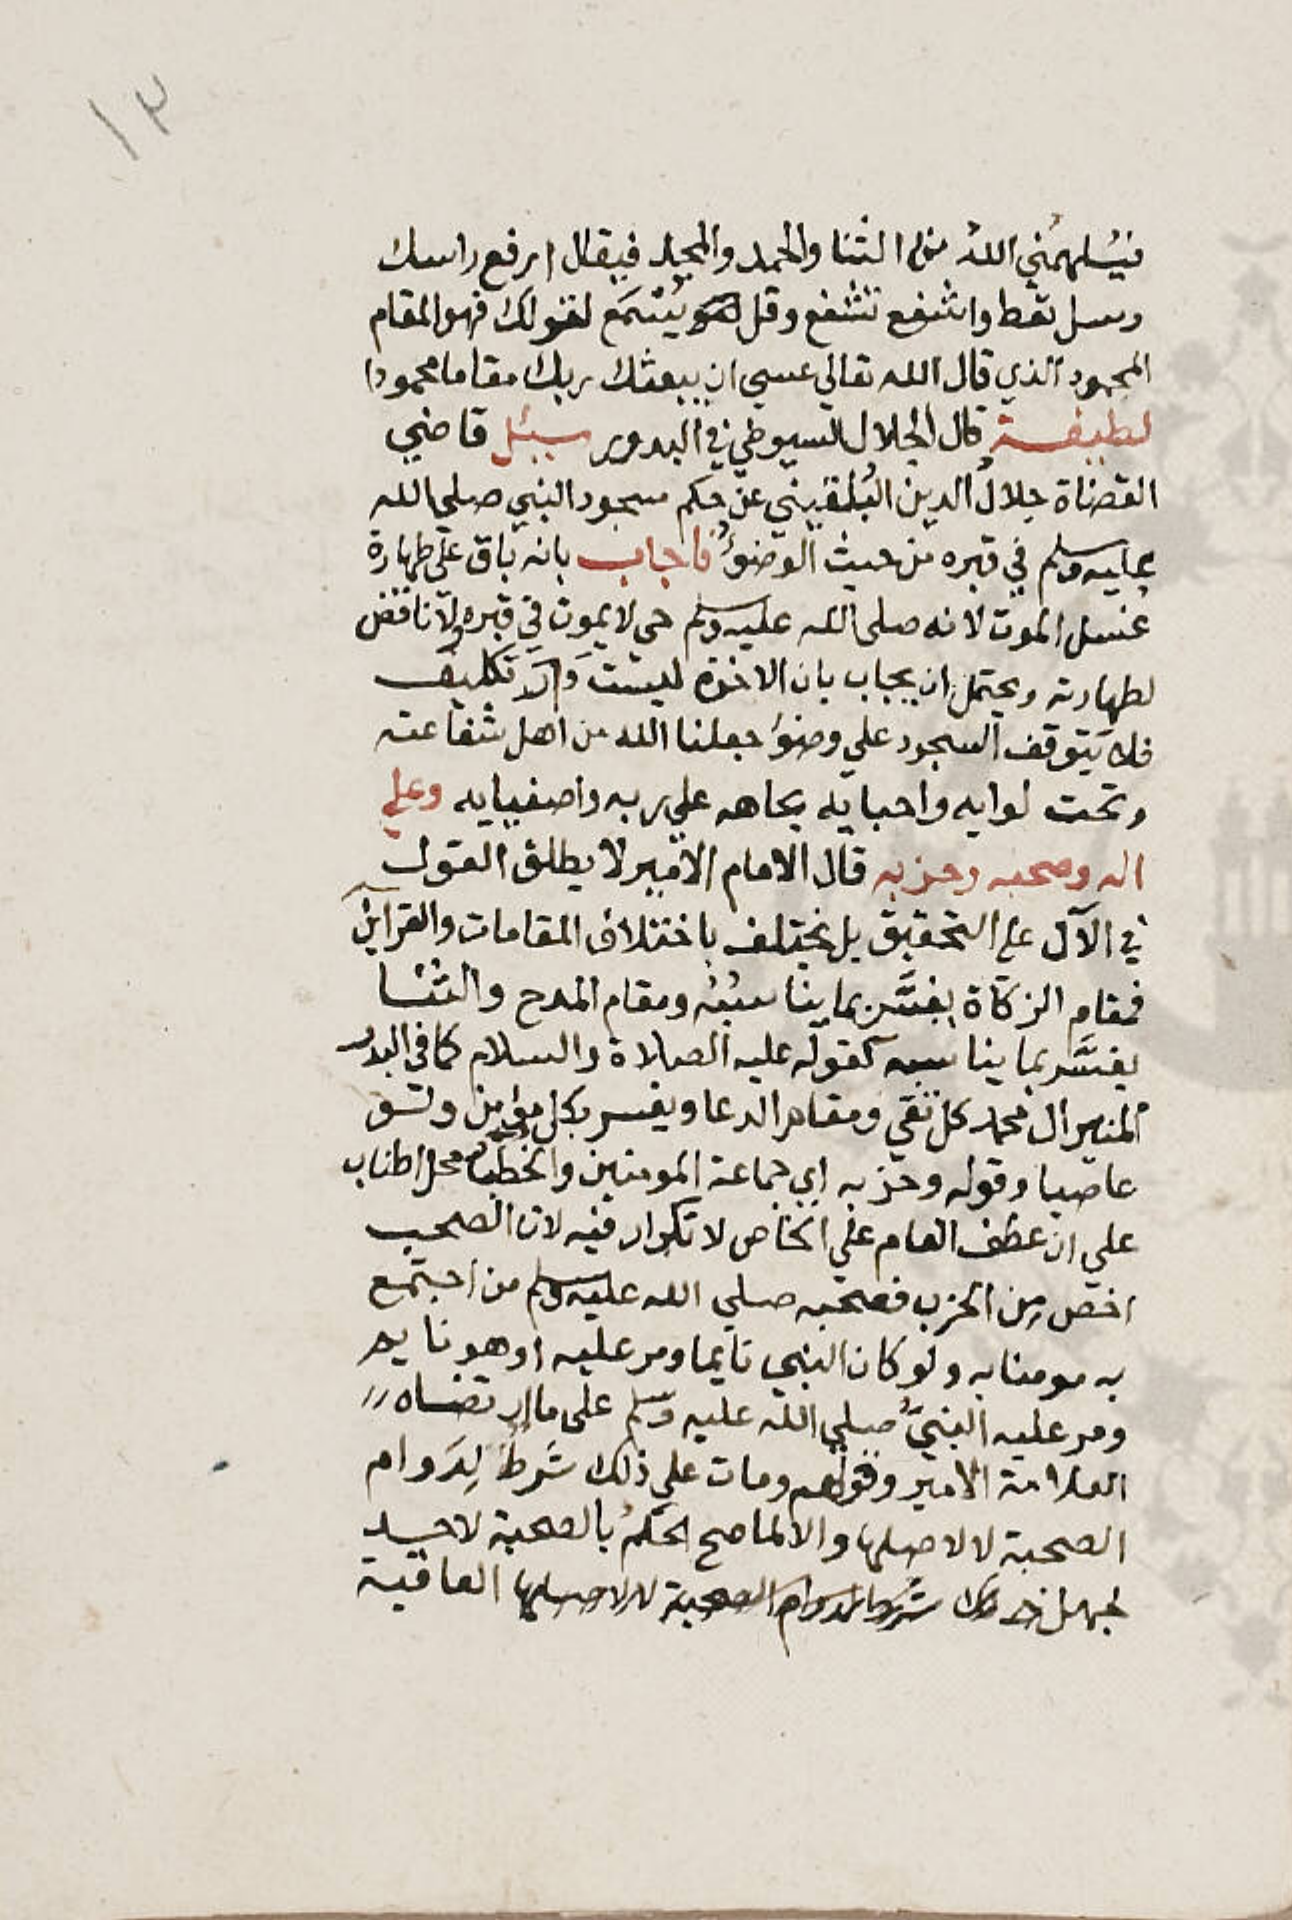 ١٣
فيُلهمُني اللهُ من الثنا والحمد والمجد فيقال ارفع راسك
وسل تعط واشفع تشفع وقل يُسْمَع لقولك فهو المقام
المحمود الذي قال الله تعالي عسي ان يبعثك ربك مقاما محمودا
لطيفة قال الجلال السيوطي في البدور سئل قاضي
القضاة جلال الدين البُلقيني عن حكم سجود النبي صلي الله
عليه وسلم في قبره من حيث الوضوء فاجاب بانه باق علي طهارة
غسل الموت لانه صلي الله عليه وسلم حي لا يموت في قبره ولا ناقض
لطهارته ويحتمل ان يجاب بان الاخرة ليست دار تكليف
فلا يتوقف السجود علي وضوء جعلنا الله من اهل شفاعته
وتحت لوايه واحبابه بجاهه علي ربه واصفيايه وعلي
اله وصحبه وحزبه قال الامام الامير لا يطلق القول
في الآل علي التحقيق بل يختلف باختلاف المقامات والقراين
فمقام الزكاة يفسَّر بما يناسبُه ومقام المدح والثنا
يفسَّر بما يناسبه كقوله عليه الصلاة والسلام كما في البدر
المنير ال محمد كل تقي ومقام الدعا ويفسر بكل مؤمن ولو
عاصيا وقوله وحزبه اي جماعة المومنين والخطبة محل اطناب
علي ان عطف العام علي الخاص لا تكرار فيه لان الصحب
اخص من الحزب فصحبه صلي الله عليه وسلم من اجتمع
به مومنا به ولو كان النبي نايما ومر عليه او هو نايم
ومر عليه النبيُّ صلي الله عليه وسلم علي ما ارتضاه
العلامة الامير وقولهم ومات علي ذلك شَرطٌ لِدَوام
الصحبة لا لاصلها والا لما صح الحكمُ بالصحبة لاحد
لجهل العاقبة